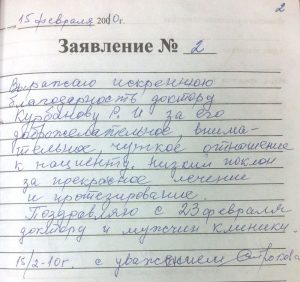 2
15 февраля 2010г.
Заявление № 2
Выражаю искреннюю
благодарность доктору
Курбанову Р. И за его
доброжелательное, внима-
тельное, чуткое отношение
к пациенту, низкий поклон
за прекрасное лечение
и протезирование.
Поздравляю с 23 февраля
доктора и мужчин клиники.
15/2-10г. с уважением